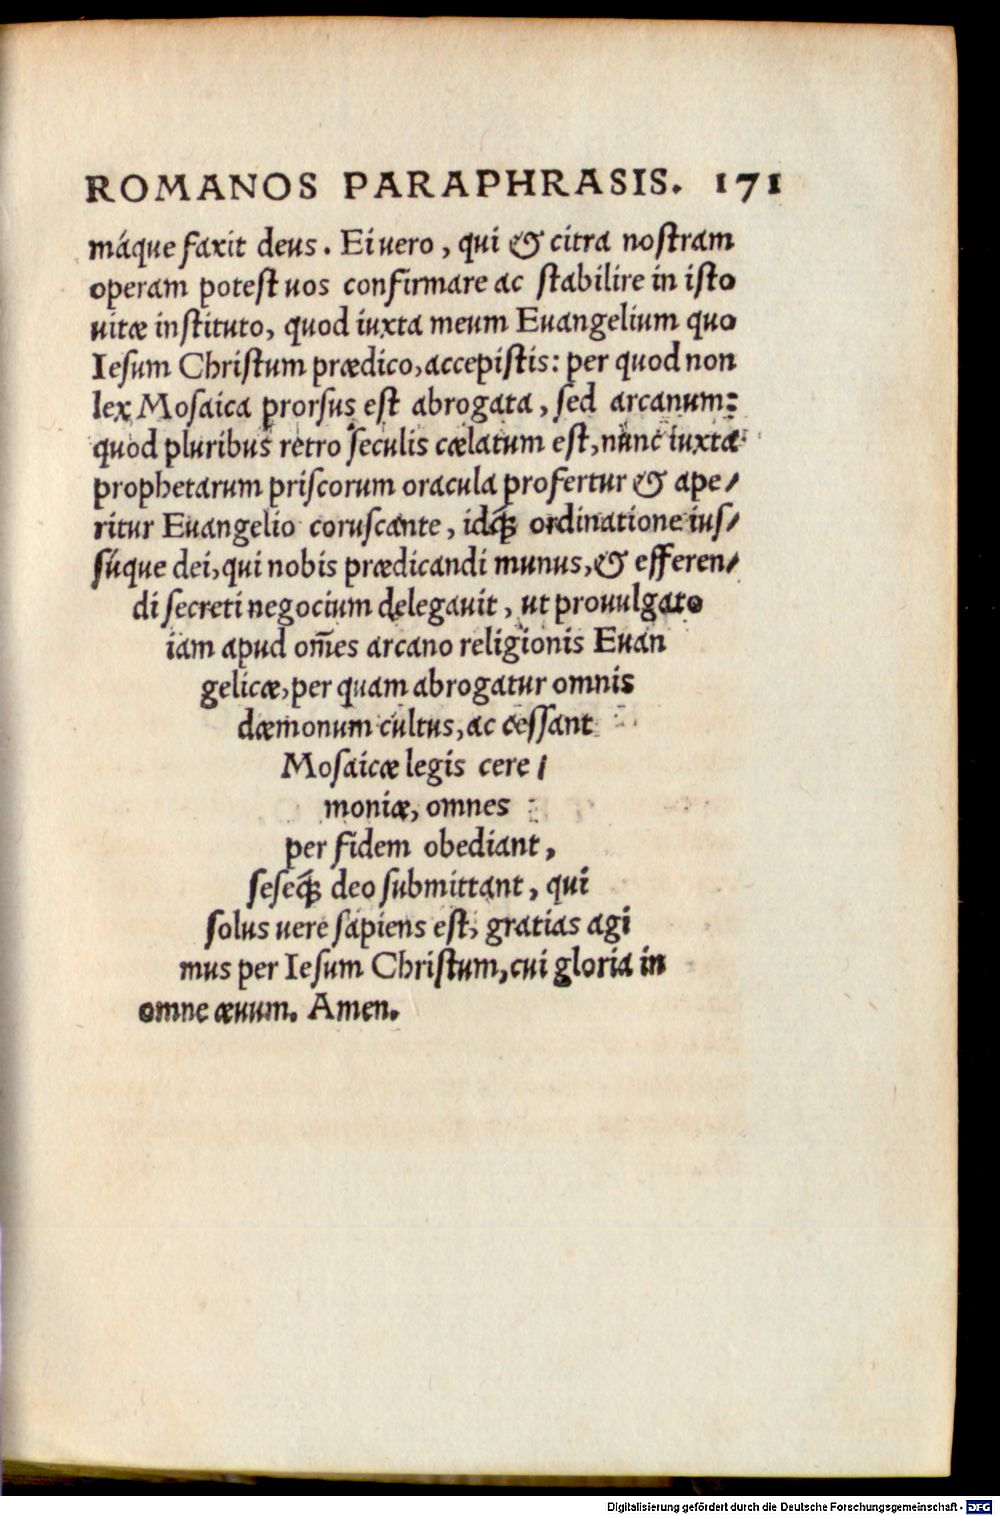 ROMANOS PARAPHRASIS. 171
máque faxit deus. Ei uero, qui & citra nostram
operam potest uos confirmare ac stabilire in isto
uitæ instituto, quod iuxta meum Euangelium quo
Iesum Christum prædico, accepistis: per quod non
lex Mosaica prorsus est abrogata, sed arcanum:
quod pluribus retro seculis cælatum est, nunc iuxta
prophetarum priscorum oracula profertur & ape/
ritur Euangelio coruscante, idq́; ordinatione ius/
súque dei, qui nobis prædicandi munus, & efferen/
di secreti negocium delegauit, ut prouulgato
iam apud om̄es arcano religionis Euan
gelicæ, per quam abrogatur omnis
dæmonum cultus, ac cessant
Mosaicæ legis cere/
moniæ, omnes
per fidem obediant,
seseq́; deo submittant, qui
solus uere sapiens est, gratias agi
mus per Iesum Christum, cui gloria in
omne æuum. Amen.
Digitalisierung gefördert durch die Deutsche Forschungsgemeinschaft - DFG